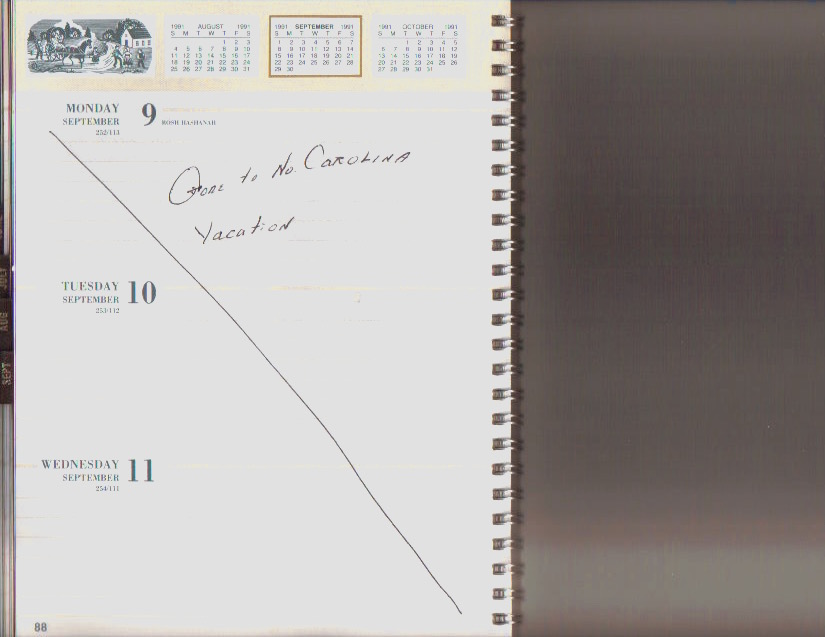 1991 AUGUST 1991
S M T W T F S
1 2 3
4 5 6 7 8 9 10
11 12 13 14 15 16 17
18 19 20 21 22 23 24
25 26 27 28 29 30 31
1991 SEPTEMBER 1991
S M T W T F S
1 2 3 4 5 6 7
8 9 10 11 12 13 14
15 16 17 18 19 20 21
22 23 24 25 26 27 28
29 30
1991 OCTOBER 1991
S M T W T F S
1 2 3 4 5
6 7 8 9 10 11 12
13 14 15 16 17 18 19
20 21 22 23 24 25 26
27 28 29 30 31
MONDAY 9
SEPTEMBER ROSH HASHANAH
252/113
Gone to No. CAROLINA
Vacation
TUESDAY 10
SEPTEMBER
253/112
WEDNESDAY 11
SEPTEMBER
254/111
JULY
AUG
SEPT
88